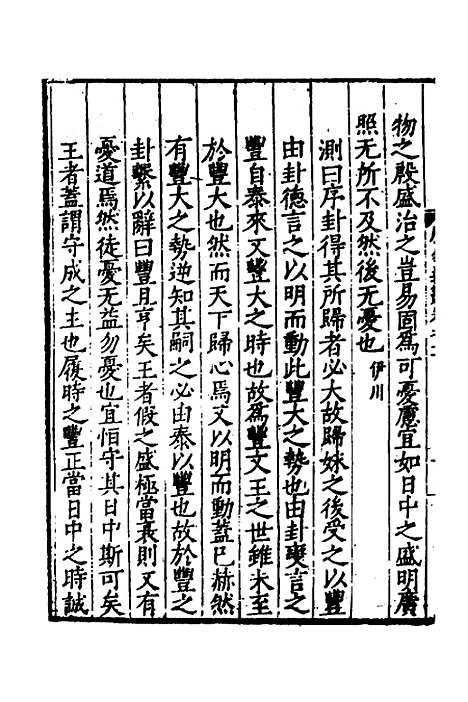 物之殷盛治之豈易固爲可憂慮宜如日中之盛明廣
照无所不及然後无憂也伊川
測曰序卦得其所歸者必大故歸妹之後受之以豐
由卦德言之以明而動此豐大之勢也由卦變言之
豐自泰來又豐大之時也故爲豐文王之世雖未至
於豐大也然而天下歸心焉又以明而動蓋已赫然
有豐大之勢逆知其嗣之必由泰以豐也故於豐之
卦繫以辭曰豐且亨矣王者假之盛極當衰則又有
憂道焉然徒憂无益勿憂也宜恒守其日中斯可矣
王者蓋謂守成之主也履時之豐正當日中之時誠